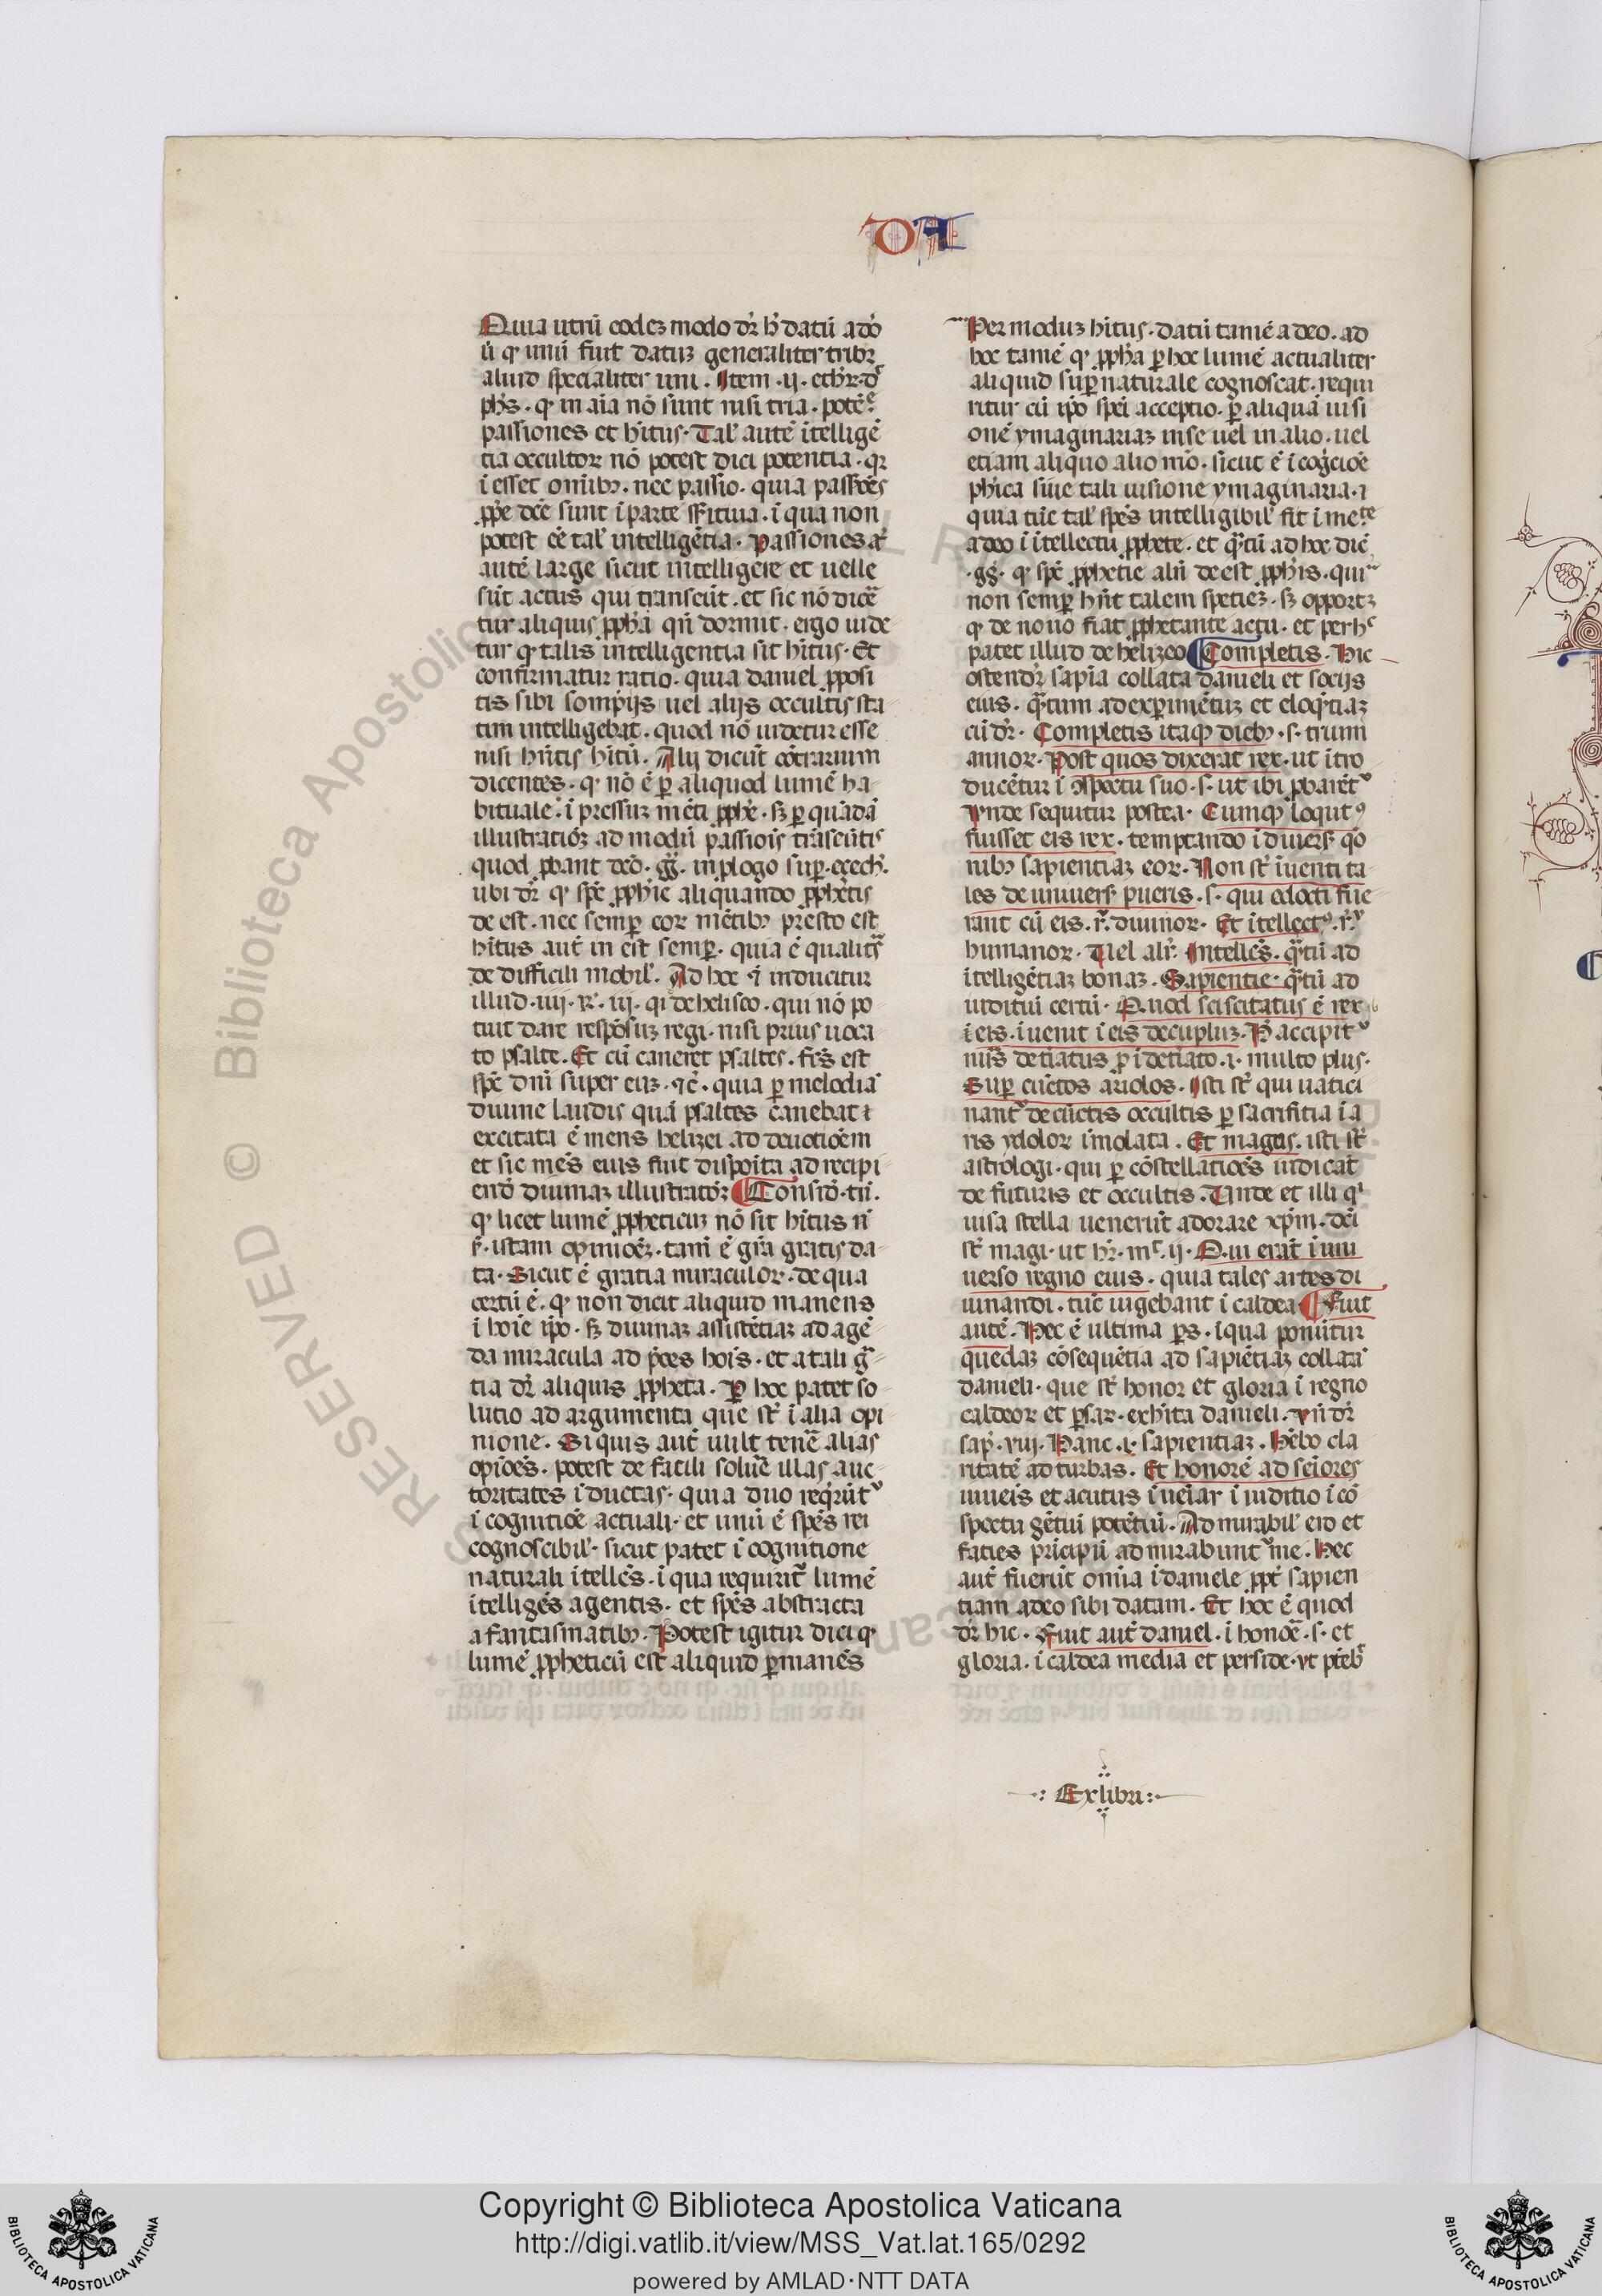 DA
Quia utrū codeʒ modo dr̄ h̄ datū adō
ū qꝫ unū fuit datuʒ generaliter tribꝫ
aliud specialiter uni. Item .ij. ethꝛ. d̄r
ph̄s. qꝫ in aīa nō sunt nisi tria. potē.ᵉ
passiones et h̄itus. Tal̄ autē ītelligē
tia occultoꝝ nō potest dici potentia. qꝛ
ī esset omībꝫ. nec passio. quia passiōes
ꝓpe dc̄e sunt ī parte sēsitiua. ī qua non
potest eē tal̄ intelligētia. Passiones
autē large sicut intelligere et uelle
sūt actus qui transeūt. et sic nō dicē
tur aliquis ꝓph̄a qn̄ dormit. ergo uide
tur qꝫ talis intelligentia sit h̄itus. Et
confirmatur ratio. quia daniel ꝓposi
tis sibi sompijs uel alijs occultis sta
tim intelligebat. quod nō uidetur esse
nisi hn̄tis h̄itū. Alij dicūt cōtrarium
dicentes. qꝫ nō ē ꝑ aliquod lumē ha
bituale. ī pressuʒ mēti ꝓphe. sꝫ ꝑ quādā
illustratiōꝫ ad modū passiōis trāseūtis
quod ꝓbant ꝑ dc̄o. gg̃. in ꝓlogo suꝑ. eꝫech̄.
ubi dr̄ qꝫ spē ꝓph̄ie aliquando ꝓphetis
de est. nec semꝑ eoꝝ mētibꝫ presto est
h̄itus autē in eīt semꝑ. quia ē qualitas
de difficili mobil̄. Ad hoc ꝉ inducitur
illud .iiij. R̄. iij. qi de heliseo. qui nō po
tuit dare respōsuʒ regi. nisi prius uoca
to psalte. Et cū caneret psaltes. fc̄s est
spē dn̄i super euʒ. ⁊c̄. quia ꝑ melodiā
diuine laudis quā psaltes canebat
excitata ē mens helizei ad deuotiōem
et sic mēs eius fuit disposita ad recipi
endō diuinaꝫ illustratōꝫ Consid̄. tn̄.
qꝫ licet lumē ꝓpheticuʒ nō sit h̄itus n̄
ẜ. istam opiniōeꝫ. tam̄ ē grā gratis da
ta. Sicut ē gratia miraculoꝝ. de qua
certū ē. qꝫ non dicit aliquid manens
ī hoīe ip̄o. sꝫ diuinaꝫ assistētiaꝫ ad agē
da miracula ad p̄ces hoīs. et a tali grā
tia dr̄ aliquis ꝓpheta. Per hoc patet so
lutio ad argumenta que st̄ ī alia opi
nione. Si quis aut̄ uult tenē alias
opiōes. potest de facili soluē illas auc
toritates īductas. quia duo reqr̄ūtᵗ
ī cognitiōe actuali. et unū ē spēs rei
cognoscibil̄. sicut patet ī cognitione
naturali ītellēs. ī qua requirit̄ lumē
ītelligēs agentis. et spēs abstracta
a fantasmatibꝫ. Potest igitur dici qꝫ
lumē ꝓpheticū est aliquid ꝑmanēs
Per moduʒ h̄itus. datū tamē a deo. ad
hoc tamē qꝫ ꝓph̄a ꝑ hoc lumē actualiter
aliquid suꝑnaturale cognoscat. requi
ritur cū ip̄o spēi acceptio. ꝑ aliquā uisi
onē ymaginariaꝫ in se uel in alio. uel
etiam aliquo alio mō. sicut ē ī cog̃ciōe
ph̄ica siue tali uisione ymaginaria. ⁊
quia tūc tal̄ spēs intelligibil̄ fit ī mēte
a deo ī ītellectu ꝓphete. et qᵃtū ad hoc dic̄
.gg̃. qꝫ spē ꝓphetie alīi de est ꝓph̄is. quia
non semꝑ hn̄t talem spetieꝫ. sꝫ opportꝫ
qꝫ de nouo fiat ꝓphetante actu. et per hᶜ
patet illud de helizeo Completis. Hic
ostendr̄ sapīa collata danieli et socijs
eius. qᵃtum ad exꝑimētuʒ et eloqᵉtiaꝫ
cū dr̄. Completis itaqꝫ diebꝫ .s. trium
annoꝝ. Post quos dixerat rex. ut ītro
ducētur ī ꝯspectu suo .s. ut ibi ꝓbarētᵗ
Vnde sequitur postea. Cumqꝫ loqutꝰ
fuisset eis rex. temptando ī diuersˢ qō
nibꝫ sapientiaꝫ eoꝝ. Non st̄ īuenti ta
les de uniuersˢ pueris .s. qui edocti fue
rant cū eis. r̄. diuinoꝝ. Et ītellectꝰ. r̄.
humanoꝝ. Vel alr̄. Intellēs. qᵃtū ad
ītelligētiaꝫ bonaꝫ. Sapientie. qᵃtū ad
iuditiū certū. Quod sciscitatus ē rex
ī eis. īuenit ī eis decupluʒ. H̄ accipitᵗ
nūs det̄iatus ꝓ īdet̄iato .i. multo plus.
Suꝑ cūctos ariolos. Isti st̄ qui uatici
nantᵗ de cūctis occultis ꝑ sacrifitia ī a
ris ydoloꝝ īmolata. Et magos. isti st̄
astrologi. qui ꝑ cōstellatiōes iudicāt
de futuris et occultis. Vnde et illi qⁱ
uisa stella uenerūt adorare xp̄m. dc̄i
st̄ magi. ut hr̄. mᵗ. ij. Qui erāt ī uni
uerso regno eius. quia tales artes di
uinandi. tūc uigebant ī caldea Fuit
autē. Hec ē ultima ps̄. ī qua ponūtur
quedaꝫ cōsequētia ad sapiētiaꝫ collatā
danieli. que st̄ honor et gloria ī regno
caldeoꝝ et ꝑsaꝝ. exh̄ita danieli. vn̄ dr̄
sap̄. viij. Hanc .i. sapientiaꝫ. Hēbo cla
ritatē ad turbas. Et honorē ad seīores
iuueīs et acutus īueīar ī iuditio ī cō
spectu gētiū potētiū. Admirabil̄ ero et
faties p̄ncipū admirabuntᵗ me. Hec
aut̄ fuerūt omīa ī daniele ꝓpt̄ sapien
tiam a deo sibi datam. Et hoc ē quod
dr̄ hic. Fuit aut̄ daniel. ī honoē .s. et
gloria. ī caldea media et perside. vt ptēbᵗ
Ex libri